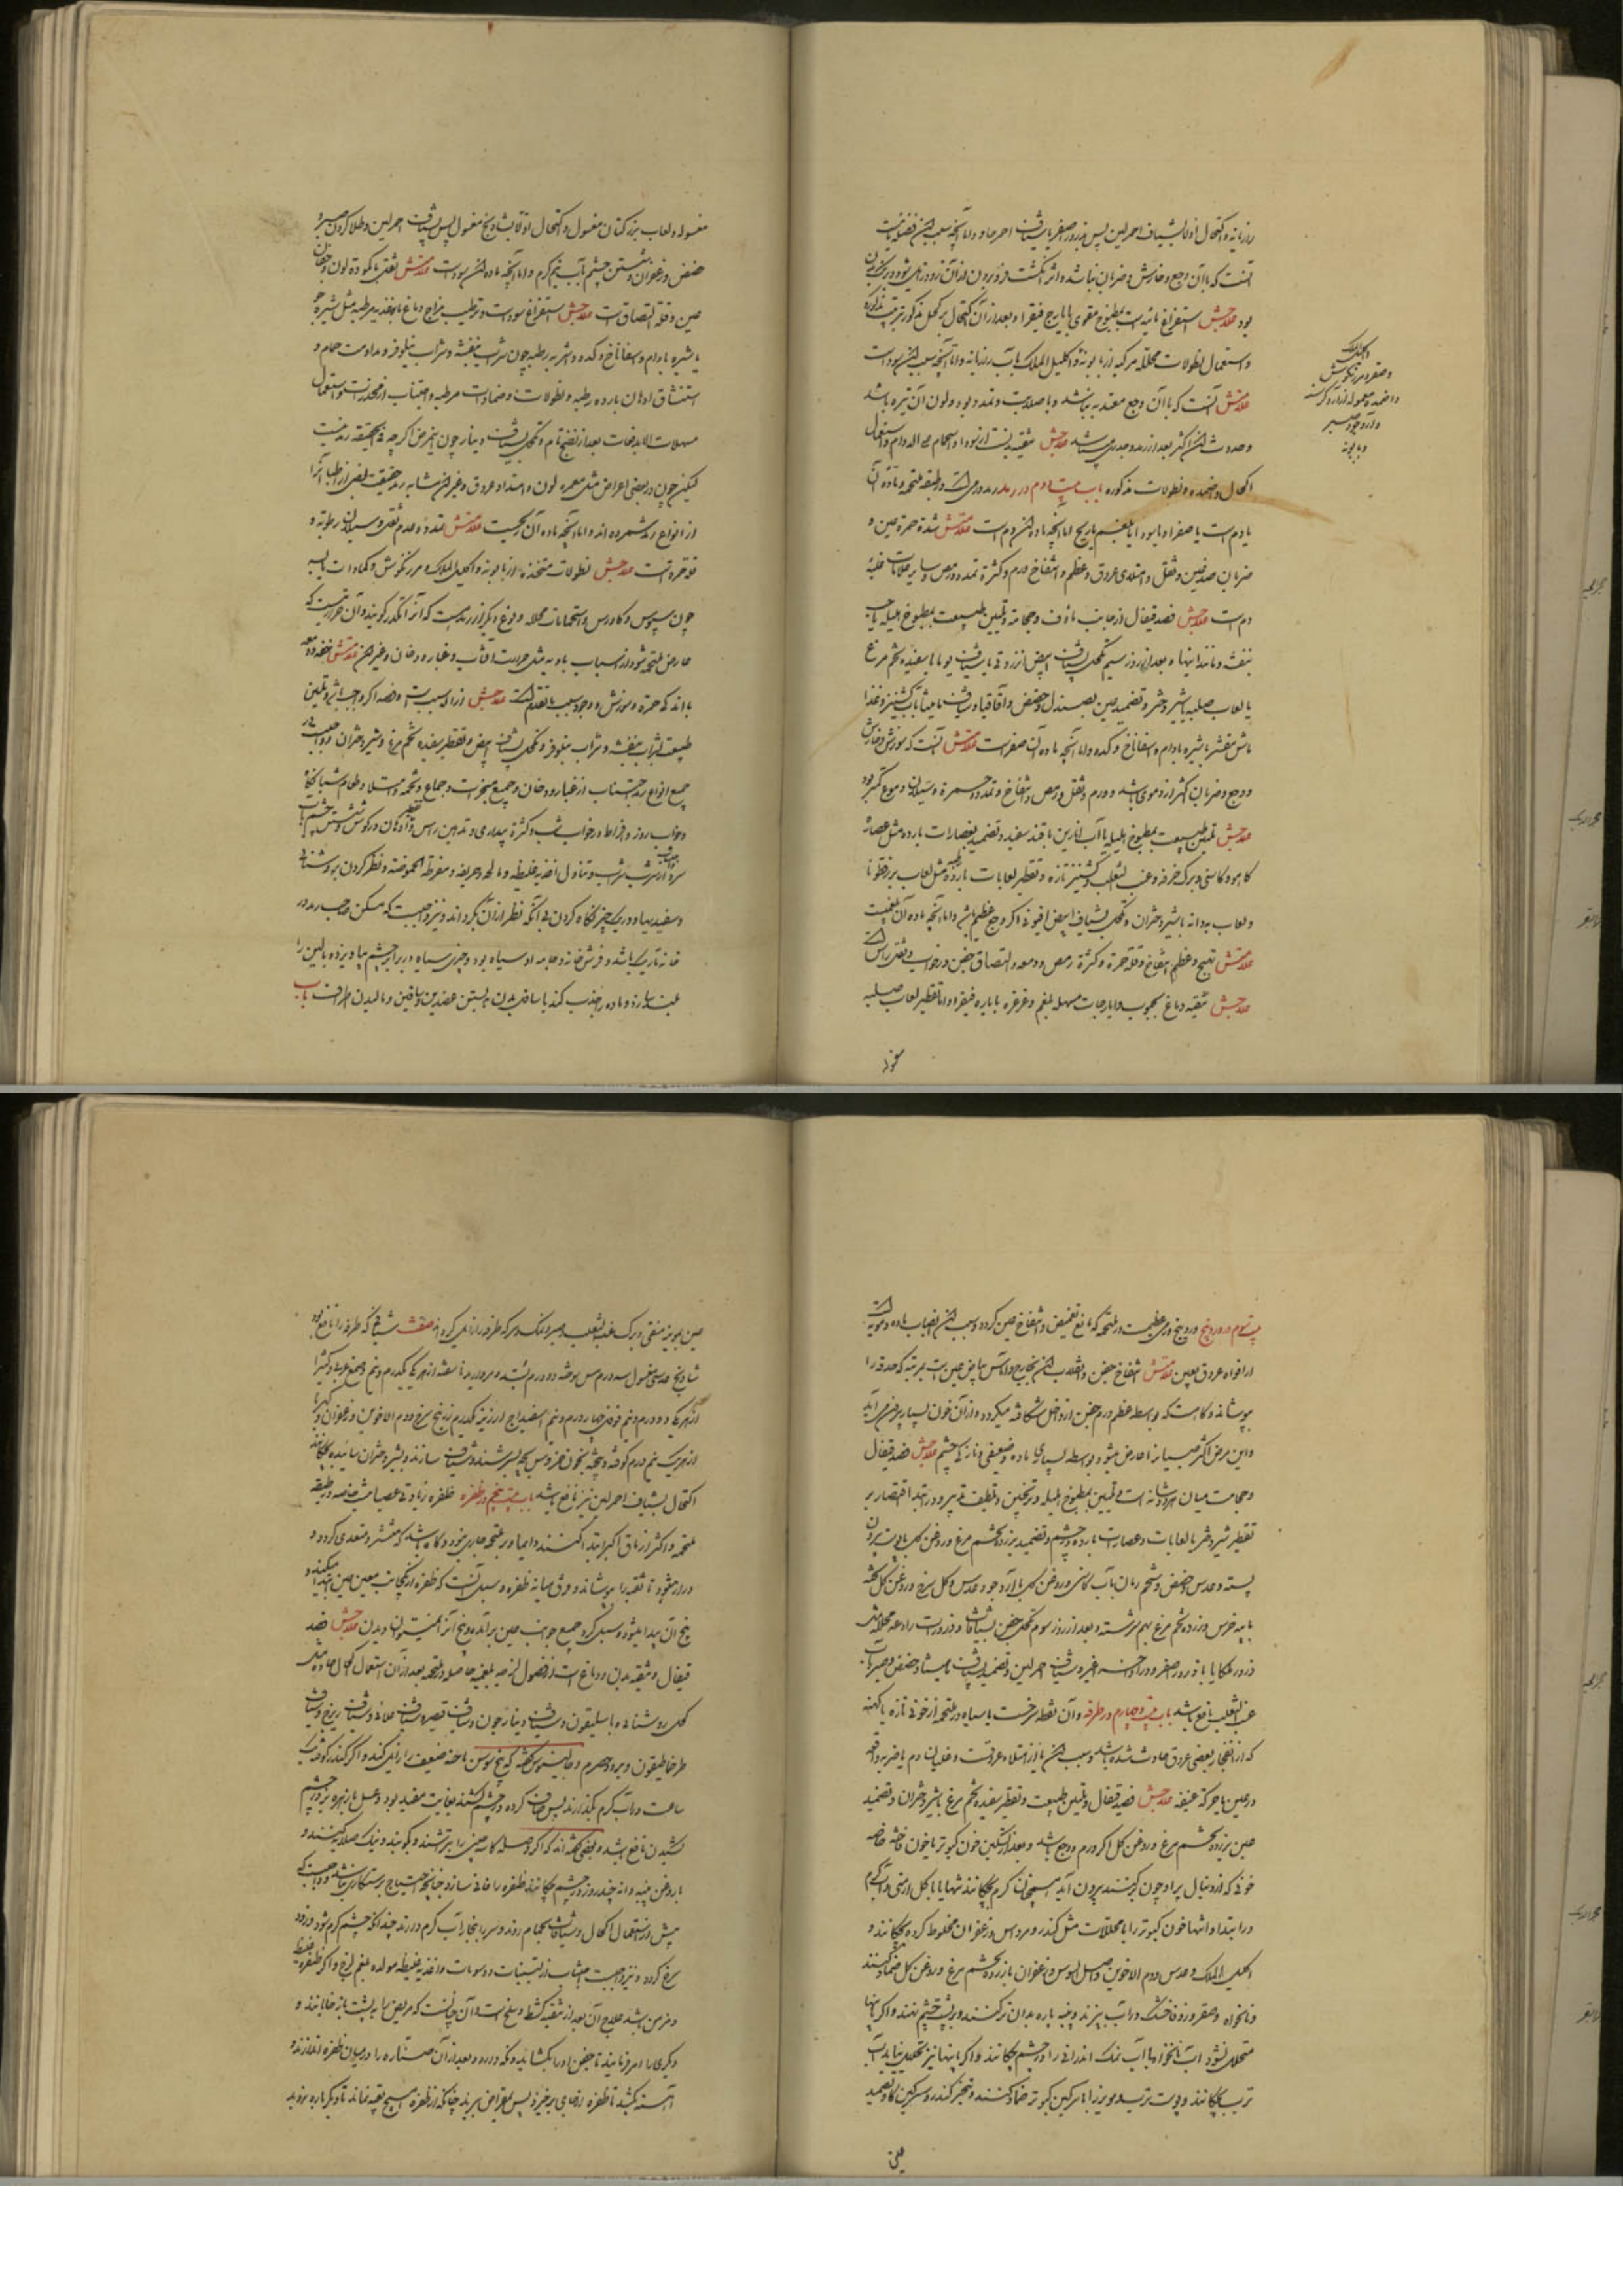 رازیانه و اکتحال اولا بشیاف احمر لین پس بذرور اصفر با شیاف احمر حاد و اما آنچه سبب این فضله
آنست که با آن وجع و خارش و ضربان نباشد و اثر انگشت فرو بردن در آن زود زایل شود
بود علاجش استفراغ مائیه است بمطبوخ مقوی بایارج فیقرا و بعد از آن اکتحال بر کحل مذکور بترتیب مذکوره
و استعمال نطولات محلله مرکبه از بابونه و اکلیل الملک با آب رازیانه و اما آنچه سبب این سوداست
علامتش آنست که با آن وجع معتد به نباشد و با صلابت و تمدد بود و لون آن تیره باشد
و حدوث این اکثر بعد از رمد و جدری میباشد علاجش تنقیه بدنست از سودا و استحمام علی الدوام و استعمال
اکحال و ضمده و نطولات مذکوره باب بیست و دوم در رمد رمد ورمی است در طبقه ملتحمه و ماده آن
یا دم است یا صفرا و یا سودا یا بلغم یا ریح اما آنچه ماده این دم است علامتش شدة حمرة عین و
ضربان صدغین و ثقل و امتلای عروق و عظم و انتفاخ ورم و کثرة تمدد و رمص و سایر علامات غلبه
دم است علاجش فصد قیفال از جانب ماؤف و حجامة و تلیین طبیعت بمطبوخ هلیله یا حب
بنفشه و مانند اینها و بعد از روز سیم تکحل بشیاف ابیض انزروتی یا شیاف یومی با سفیده تخم مرغ
یا لعاب حلبه یا شیر دختر و تضمید عین بصندل و حضض و اقاقیا و شیاف مامیثا بآب کشنیز و غذا
ماش مقشر با شیره بادام و اسفاناخ و کدو و اما آنچه ماده آن صفراست علامتش آنست که سوزش و خارش
و وجع و ضربان اکثر از دموی باشد و ورم و ثقل و رمص و انتفاخ و تمدد و حمرة و سیلان دموع کمتر بود
علاجش تلیین طبیعت بمطبوخ هلیله یا آب انارین با قند سفید و تضمید بعصارات بارده مثل عصاره
کاهو و کاسنی و برک خرفه و عنب الثعلب و کشنیز تازه و تقطیر لعابات بارده مثل لعاب بزرقطونا
و لعاب به دانه با شیر دختران و تکحل بشیاف ابیض افیونی اگر وجع عظیم باشد و اما آنچه ماده آن بلغمست
علامتش تهیج و عظم انتفاخ و قلة حمرة و کثرة رمص و دمعه و التصاق جفن در خواب و ثقل راس است
علاجش تنقیه دماغ بحبوب و ایارجات مسهله بلغم و غرغره بایاره فیقرا و اما تقطیر لعاب حلبه
مغسوله
واکلیل الملک
و صعتر و مرزنجوش
و اضمده معموله از آرد کرسنه
و آرد جو و صبر
و بابونه
مغسوله و لعاب بزر کتان مغسول و اکتحال اولا بشادنج مغسول پس بشیاف احمر لین و طلا کردن صبر و
حضض و زعفران و شستن چشم بآب نیم گرم و اما آنچه ماده این سوداست علامتش ثقل با کمودة لون و جفاف
عین و قلة التصاق است علاجش استفراغ سوداست و ترطیب مزاج دماغ باغذیه مرطبه مثل شیره جو
با شیره بادام و اسفاناخ و کدو و اشربه رطبه چون شراب بنفشه و شراب نیلوفر و مداومت حمام و
استنشاق ادهان بارده رطبه و نطولات و ضمادات مرطبه و اجتناب از مخدرات و استعمال
مسهلات الا بدفعات بعد از نضج تام و تکحل بشیاف دینارجون این مرض اگر چه فی الحقیقه رمد نیست
لیکن چون در بعضی اعراض مثل حمره لون و امتداد عروق و غیر این مشابه رمد حقیقت بعضی از اطبا آنرا
از انواع رمد شمرده اند و اما آنچه ماده آن ریحیست علامتش تمدد و عدم ثقل و سیلان رطوبة و
قلة حمرة است علاجش نطولات متخذه از بابونه و اکلیل الملک و مرزنگوش و کمادات یابسه
چون سبوس و کاورس و استحمامات محلله و نوع دیگر از رمدست که آنرا تکدر گویند و آن حرارتیست که
عارض ملتحمه شود از اسباب بادیه مثل حرارت آفتاب و غبار و دخان و غیر این علامتش خفه دمعه
با اندک حمرة و سوزش و وجود سبب با تقدم است علاجش ازاله سبب است و فصد اگر واجب باشد و تلیین
طبیعت بشراب بنفشه و شراب نیلوفر و تکحل بشیاف ابیض و تقطیر سفیده تخم مرغ و شیر دختران و واجبست در
جمیع انواع رمد اجتناب از غبار و دخان و جمیع مبخرات و جماع و تخمه و امتلا و طعام شبانگاه
و خواب روز و افراط در خواب شب و کثرة بیداری و تدهین راس و تقطیر ادهان در گوش و شستن چشم بآب
سرد و اجتناب از شرب شراب و تناول اغذیه غلیظه و مالحه و حریفه و مفرطة الحموضه و نظر کردن به روشنائی
و سفید بهاء و در یک چیز نگاه کردن بی آنکه نظر از آن بگرداند و نیز واجبست که مسکن صاحب رمد در
خانه تاریک باشد و فرش خانه و جامه او سیاه بود و چیزی سیاه در برابر چشم بیاویزند و بالین را
بلند سازند و ماده را جذب کند با سافل بدن به بستن عضدین و ساقین و مالیدن اطراف باب
بیست و سوم در وردینج وردینج ورمی عظیمست در ملتحمه که مانع تغمیض و انتفاخ عین گردد و سبب این انصباب ماده دمویه است
از افواه عروق بعین علامتش انتفاخ جفن و انقلاب این بخارج و آماس بیاض عین است بمرتبه که حدقه را
بپوشاند و گاهست که بواسطه عظم ورم جفن از داخل شکافته میگردد و از آن خون بسیار بیرون آید
و این مرض اکثر صبیان را عارض میشود بواسطه بسیاری ماده و ضعیفی و نازکی چشم علاجش فصد قیفال
و حجامت میان هر دو شانه است و تلیین بمطبوخ هلیله و ترنجبین و تلطیف تدبیر و در ابتدا اقتصار بر
تقطیر شیر دختر با لعابات و عصارات بارده در چشم و تضمید بزرده تخم مرغ و روغن گل یا پوست بیرون
پسته و عدس و حضض و شحم رمان بآب کاسنی و روغن گل با آرد جو و عدس و گل سرخ و روغن گل پخته
با پیه خرس و زرده تخم مرغ بهم سرشته و بعد از روز سوم تکحل جفن بشیافات و ذرورات رادعه محلله مثل
ذرور ملکایا یا ذرور اصفر و در آخر اغبر و شیاف احمر لین و تضمید بشیاف مامیثا و حضض و صبر بآب
عنب الثعلب نافع باشد باب بیست و چهارم در طرفه و آن نقطه سرخست یا سیاه در ملتحمه از خونی تازه یا کهنه
که از انفجار بعضی عروق حادث شده باشد و سبب این یا از امتلاء عروقست و غلیان دم یا ضربه واقعه
در عین یا حرکة عنیفه علاجش فصد قیفال و تلیین طبیعت و تقطیر سفیده تخم مرغ با شیر دختران و تضمید
عین بزرده تخم مرغ و روغن گل اگر ورم و وجع باشد و بعد از تسکین خون کبوتر یا خون فاخته خاصه
خونی که از دنبال پر او چون برکنند بیرون آید همچنان گرم بچکانند تنها یا با گل ارمنی و آب گرم
در ابتدا و انتها خون کبوتر را با محللات مثل کندر و مر و اس و زعفران مخلوط کرده بچکانند و
اکلیل الملک و عدس و دم الاخوین و اصل السوس و زعفران با زرده تخم مرغ و روغن گل ضماد کنند
و نانخواه و صعتر و زوفا خشک در آب بپزند و پنبه پاره بدان تر کنند و بر پشت چشم نهند و اگر باینها
متحلل نشود آب نانخواه یا آب نمک اندرانی را در چشم بچکانند و اگر باینها نیز تحلیل نیابد آب
ترب بچکانند و پوست ترب و مویز را با سرگین کبوتر ضماد کنند و تبخیر کندر و سرگین گاو و تضمید
عین
عین بمویز منقی و برک عنب الثعلب و صبر و نمک و سرکه طرفه را زایل گرداند صفت شیافی که طرفه را نافع بود
شادنج عدسی مغسول سه درم مس سوخته دو درم بسد مروارید ناسفته از هر یکی یکدرم و نیم صمغ عربی و کتیرا
از هر یکی دو درم و نیم فوفل چهار درم و نیم اسفیداج ارزیز یکدرم زرنیخ سرخ و دم الاخوین و زعفران و کهربا
از هر یک نیم درم کوفته و بیخته بخون خروس بچه بسرشند و شیاف سازند و بشیر دختران سائیده بچکانند
اکتحال بشیاف احمر لین نیز نافع باشد باب بیست و پنجم در ظفره ظفره زیادتی عصبانیست خاصه در طبقه
ملتحمه و اکثر از ماق اکبر ابتدا کنند و دایما بر ملتحمه جاری بود و گاه باشد که منتشر و متعدی گردد و
دراز میشود تا ثقبه را بپوشاند و فرق میانه ظفره و سبل آنست که ظفره از یکجانب معین عین ابتدا میکند و
بیخ آن پیدا میشود و سبل گرد جمیع جوانب عین برآمده و بیخ آنرا نمیتوان دیدن علاجش فصد
قیفال و تنقیه بدن و دماغ است از فضول لزجه بلغمیه حاصله در ملتحمه بعد از آن استعمال اکحال حاده مثل
کحل روشنائی و باسلیقون و شیاف دینارجون و شیاف قیصر و شیاف علائی و شیاف زرنیخ و شیاف
طرخماطیقون و برود حصرم و جالینوس گفته که بیخ سوسن ناخنه ضعیف را زایل کند و اگر کندر کوفته یک
ساعت در آب گرم بگذارند پس صاف کرده در چشم کشند بغایت مفید بود و عسل با زهره بز در چشم
کشیدن نافع باشد و بعضی گفته اند که اگر وصله کاسه چینی را بتراشند و بکوبند و نیک صلایه کنند و
با روغن پنبه دانه چند روز در چشم بچکانند ظفره را فانی سازد چنانچه احتیاج بدستکاری نباشد و واجبست که
پیش از استعمال اکحال و شیافات بحمام روند و سر را ببخار آب گرم دارند چندانکه چشم گرم شود و زود
سرخ گردد و نیز واجبست اجتناب از لبنیات و دسومات و اغذیه غلیظه مولده بلغم لزج و اگر ظفره غلیظ
و مزمن باشد علاج آن بعد از تنقیه کشط و سلخ است و آن چنانست که مریض را به پشت باز خوابانند و
دیگری را امر فرمایند تا جفن او را بگشاید و نگه دارد و بعد از آن صناره را در میان ظفره اندازند و
آهسته کشند تا ظفره از جای برخیزد پس بمقراض ببرند چنانکه از ظفره هیچ بقیه نماند تا دیگر باره نروید